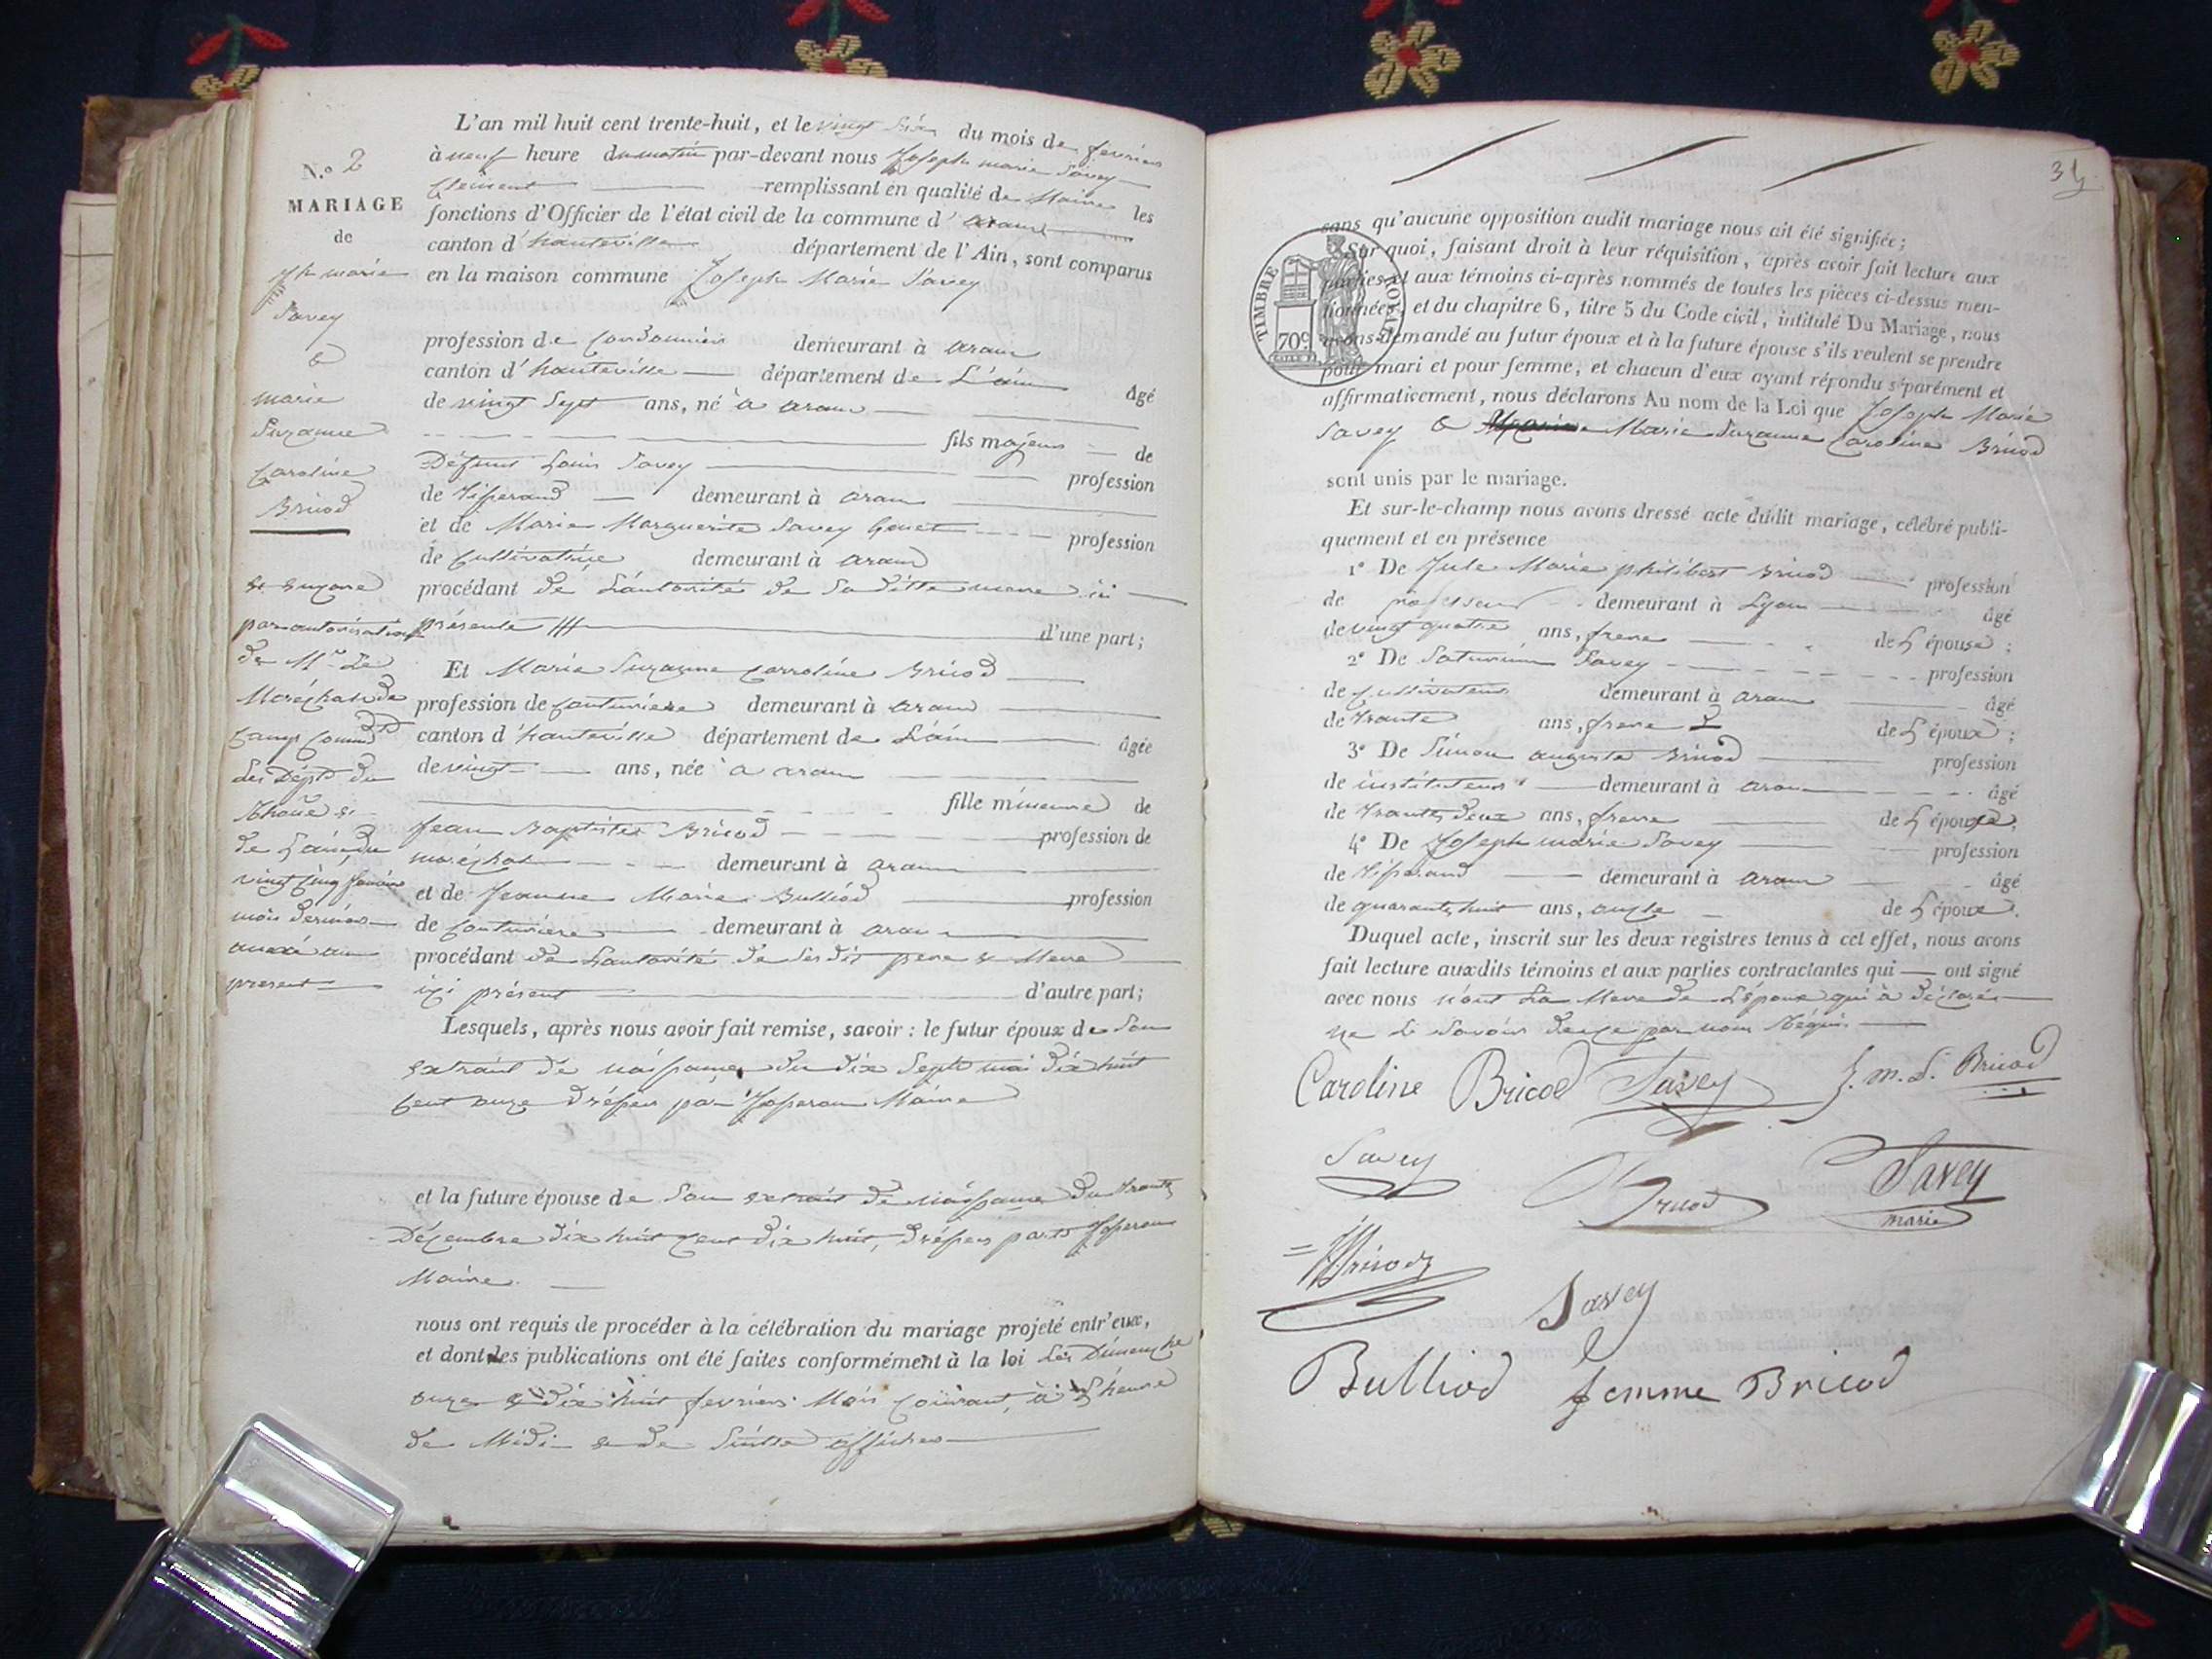 N.º 2
MARIAGE
de
Jph marie
Savey
&
marie
Suzanne
Caroline
Bricod
& encore
par autorisation
de Mr Le
Maréchal de
Camp Commdt
les Dépts du
Rhône &
de L'ain, du
vingt cinq
mois dernier
annexé au
present
L'an mil huit cent trente-huit, et le vingt six du mois de fevrier
à neuf heure du matin par-devant nous Joseph marie Savey
Clement remplissant en qualité de Maire les
fonctions d'Officier de l'état civil de la commune d' aranc
canton d' hauteville département de l'Ain, sont comparus
en la maison commune Joseph Marie Savey
profession de Cordonnier demeurant à aranc
canton d' hauteville département de L'ain âgé
de vingt Sept ans, né à aranc
fils majeur de
Défunt Louis Savey profession
de Tisserand demeurant à aranc
et de Marie Marguerite Savey Gonet profession
de Cultivatrice demeurant à aranc
procédant de L'autorité de Sa ditte mere ici
présente d'une part;
Et Marie Suzanne Carroline Bricod
profession de Couturiere demeurant à aranc
canton d' hauteville département de L'ain âgée
de vingt ans, née à aranc
fille mineure de
Jean Baptiste Bricod profession de
maréchal demeurant à aranc
et de Jeanne Marie Bulliod profession
de Couturiere demeurant à aranc
procédant de L'autorité de Ses dit pere & Mere
ici présent d'autre part;
Lesquels, après nous avoir fait remise, savoir : le futur époux de Son
extrait de naissance du dix Sept mai dix huit
Cent onze Dréssée par Maire
et la future épouse de Son extrait de naissance du trante
Décembre dix huit Cent dix huit, Dréssée par
Maire.
nous ont requis de procéder à la célébration du mariage projeté entr'eux,
et dont les publications ont été faites conformément à la loi Les Dimanche
onze & dix huit fevrier Mois Courant, à L'heure
de Midi & de Suitte affichee
34
TIMBRE ROYAL
70c
sans qu'aucune opposition audit mariage nous ait été signifiée;
Sur quoi, faisant droit à leur réquisition, après avoir fait lecture aux
parties et aux témoins ci-après nommés de toutes les pièces ci-dessus men-
tionnées, et du chapitre 6, titre 5 du Code civil, intitulé Du Mariage, nous
avons demandé au futur époux et à la future épouse s'ils veulent se prendre
pour mari et pour femme, et chacun d'eux ayant répondu séparément et
affirmativement, nous déclarons Au nom de la Loi que Joseph Marie
Savey & Marie Suzanne Caroline Bricod
sont unis par le mariage.
Et sur-le-champ nous avons dressé acte dudit mariage, célébré publi-
quement et en présence
1º De Jule Marie philibert Bricod profession
de professeur demeurant à Lyon âgé
de vingt quatre ans, frere de L'épouse;
2º De Saturnin Savey profession
de Cultivateur demeurant à aranc âgé
de trante ans, frere de L'époux;
3º De Simon auguste Bricod profession
de instituteur demeurant à aranc âgé
de trante deux ans, frere de L'épouse;
4º De Joseph marie Savey profession
de Tisserand demeurant à aranc âgé
de quarante huit ans, oncle de L'époux.
Duquel acte, inscrit sur les deux registres tenus à cet effet, nous avons
fait lecture auxdits témoins et aux parties contractantes qui ont signé
avec nous non La Mere de L'époux qui à déclarée
ne Le Savoir de ce par nous Réquis.
Caroline Bricod Savey J. m. S. Bricod
Savey Bricod Savey
marie
Bricod
Savey
Bulliod femme Bricod